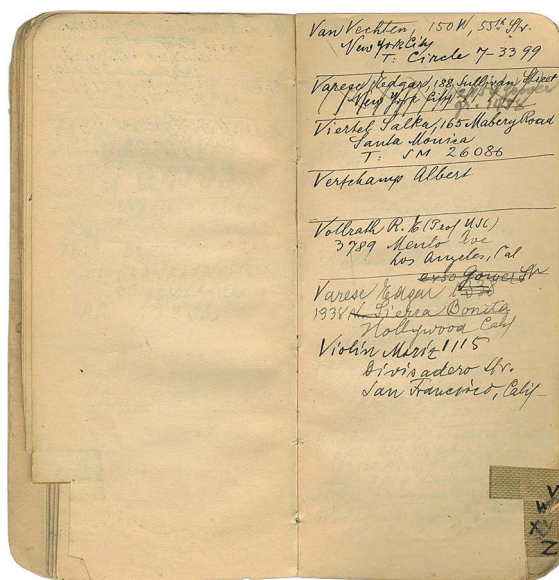 Van Vechten, 150 W, 55th Str.
New York City
T: Circle 7-3399
Varese Edgar, 188, Sullivan Street
New York City
Viertel Salka, 165 Mabery Road
Santa Monica
T: SM 26086
Vertchamp Albert
Vollrath R. E (Prof USC)
3789 Menlo Ave
Los Angeles, Cal
Gower Str
Varese Edgar
1938 N. Sierra Bonita
Hollywood Calif
Violin Moriz 1115
Divisadero Str.
San Francisco, Calif
V
W
X Y
Z